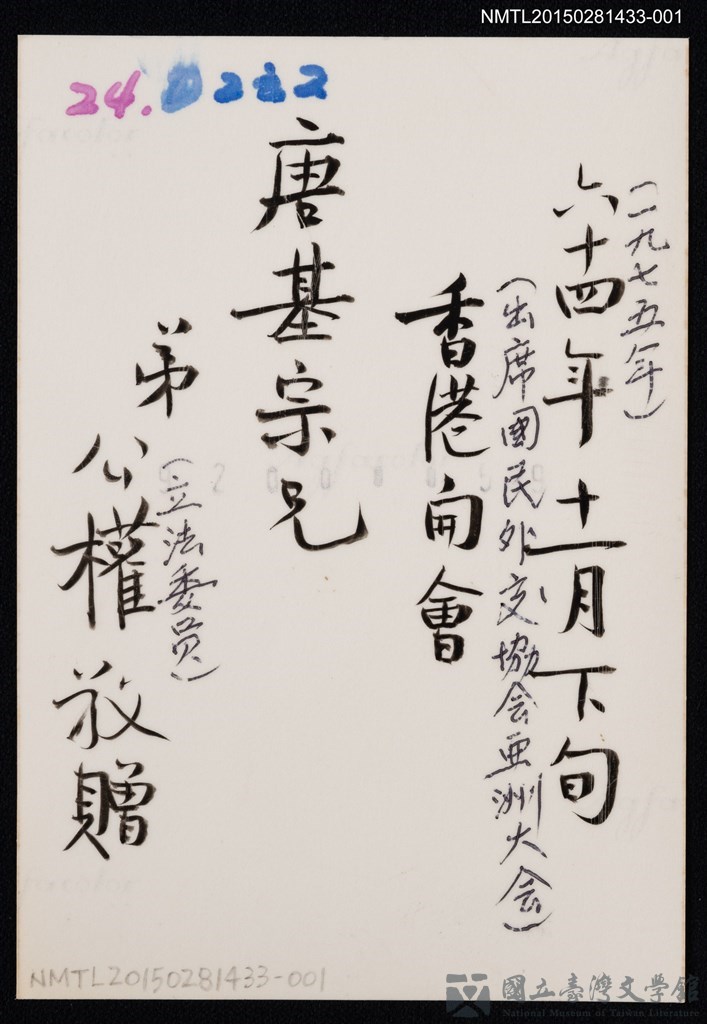 NMTL20150281433-001
24.
222
(一九七五年)
六十四年十一月下旬
(出席國民外交協会亜洲大会)
香港開會
唐基宗兄
弟
(立法委员)
公權敬贈
NMTL20150281433-001
國立臺灣文學館
National Museum of Taiwan Literature